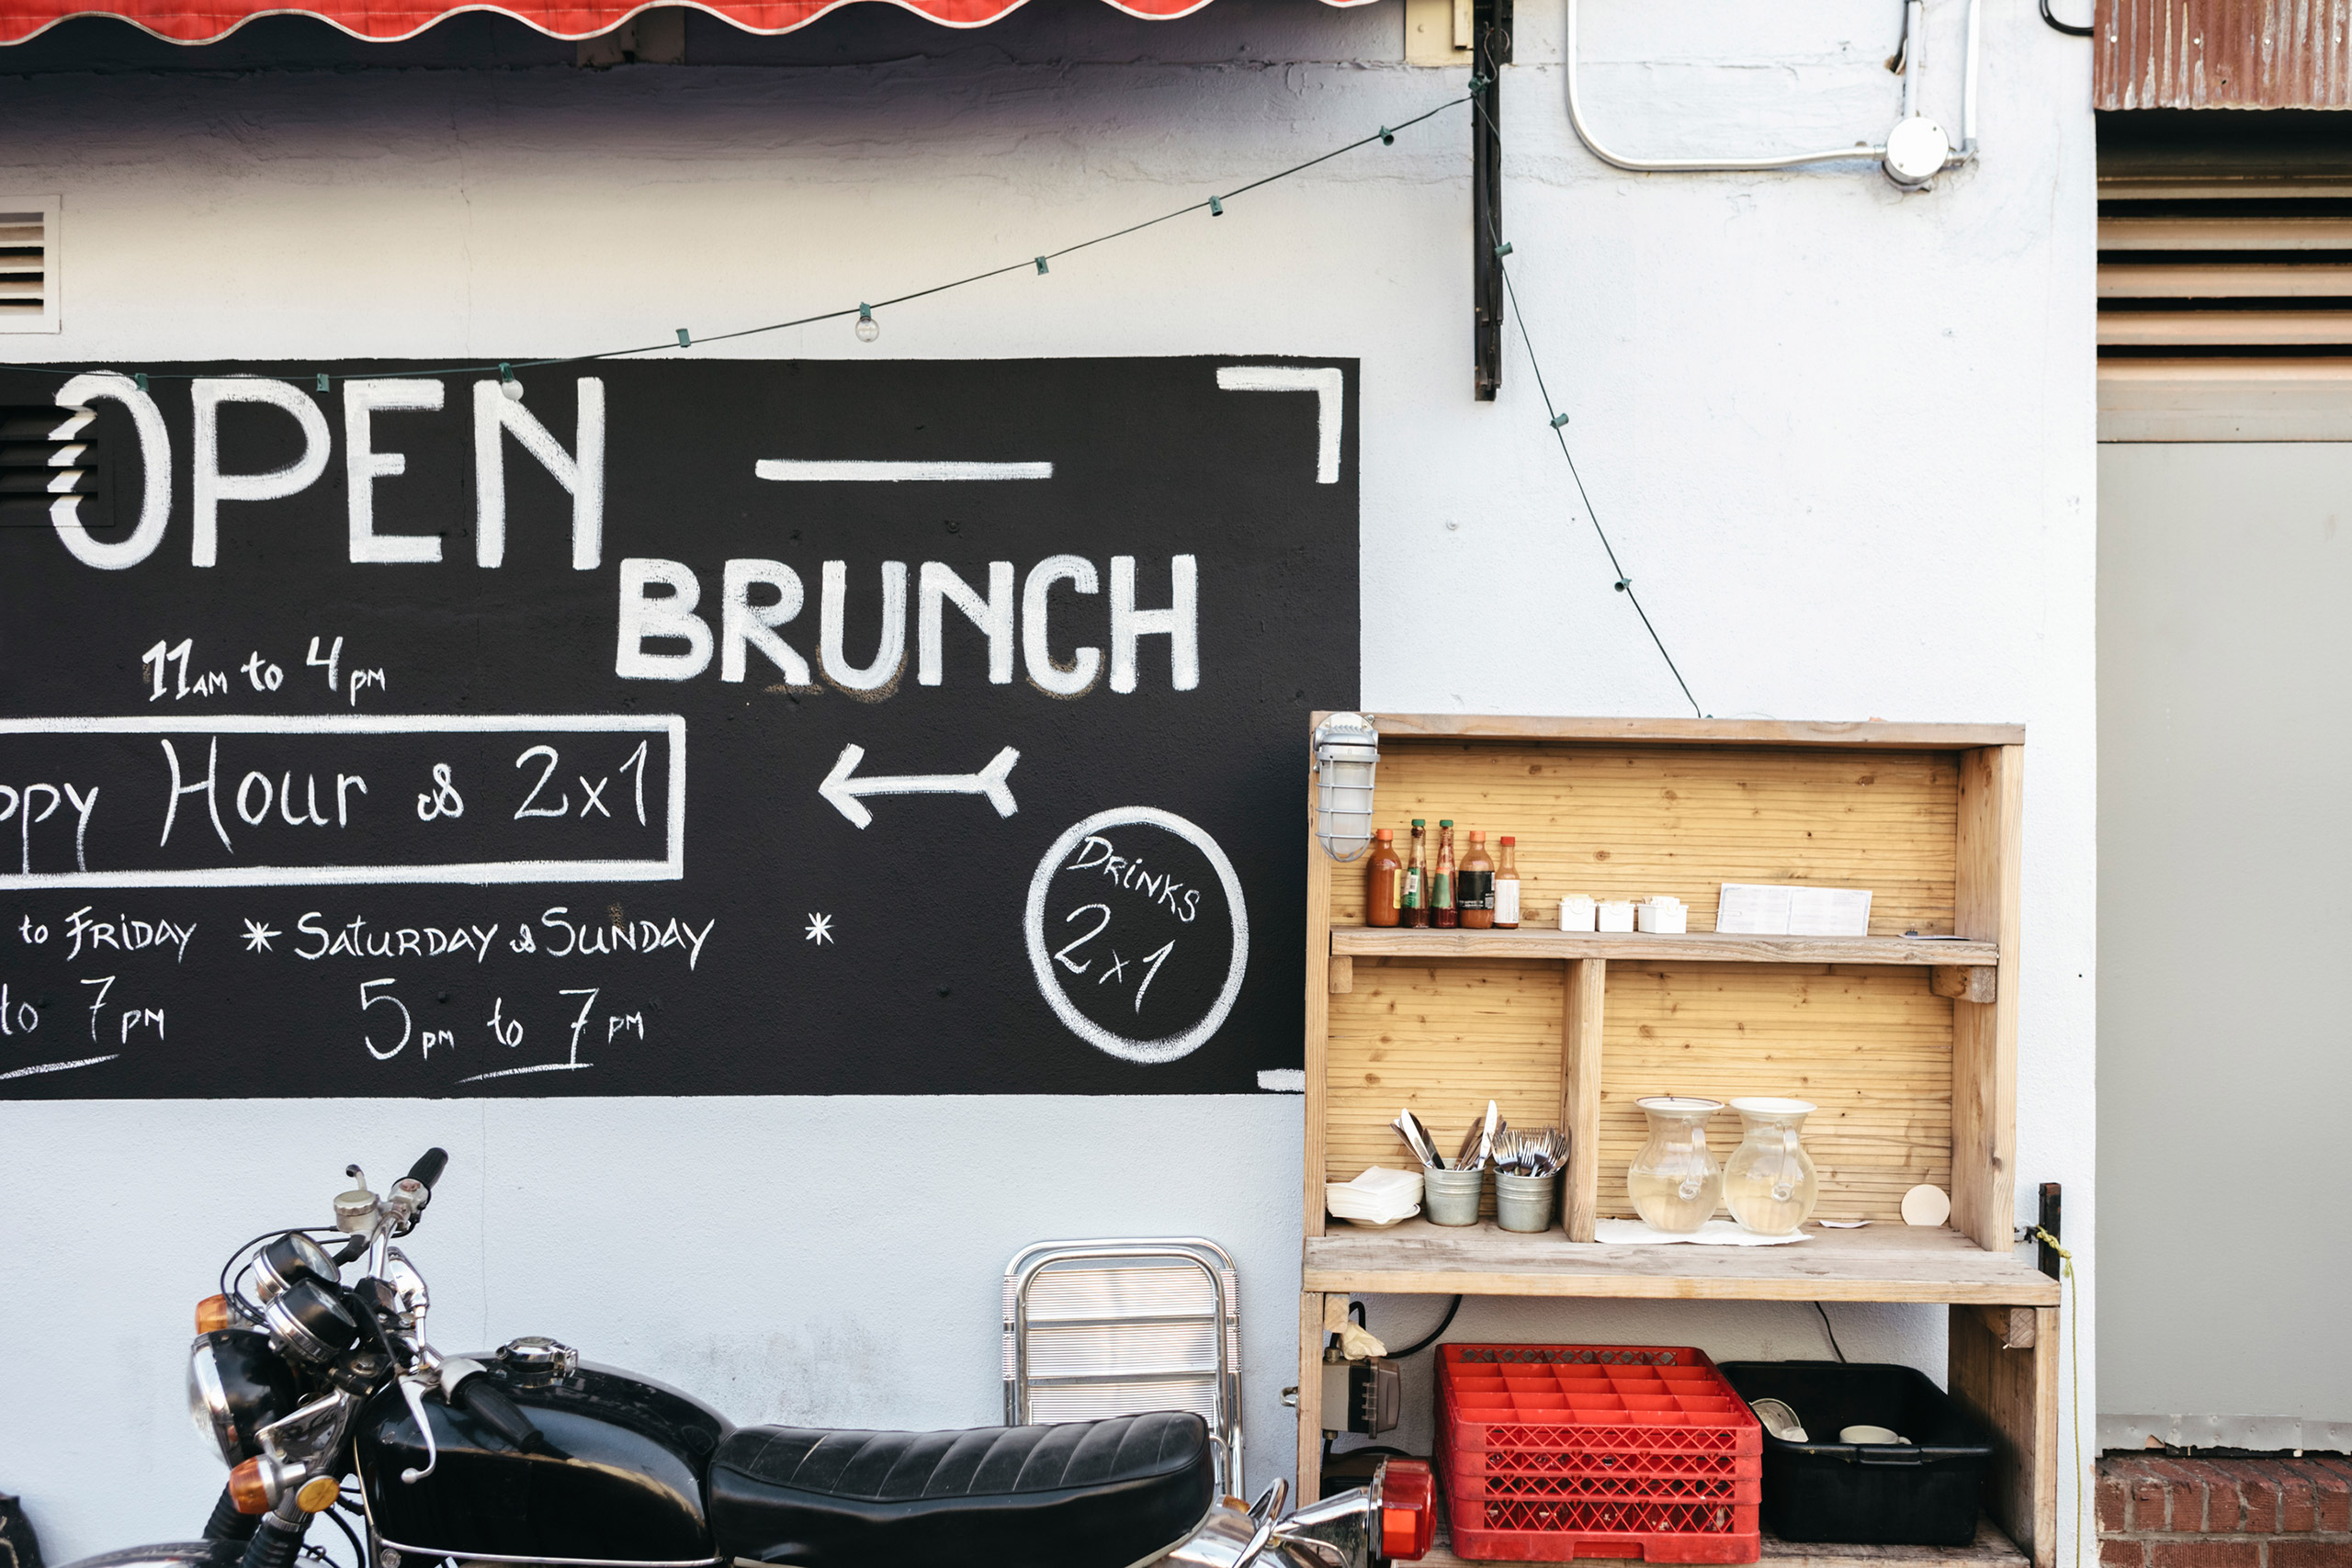 OPEN
BRUNCH
11AM to 4PM
ppy Hour & 2x1
to FRiDAY * SATURDAY & SUNDAY *
to 7PM 5PM to 7PM
DRiNKS
2x1